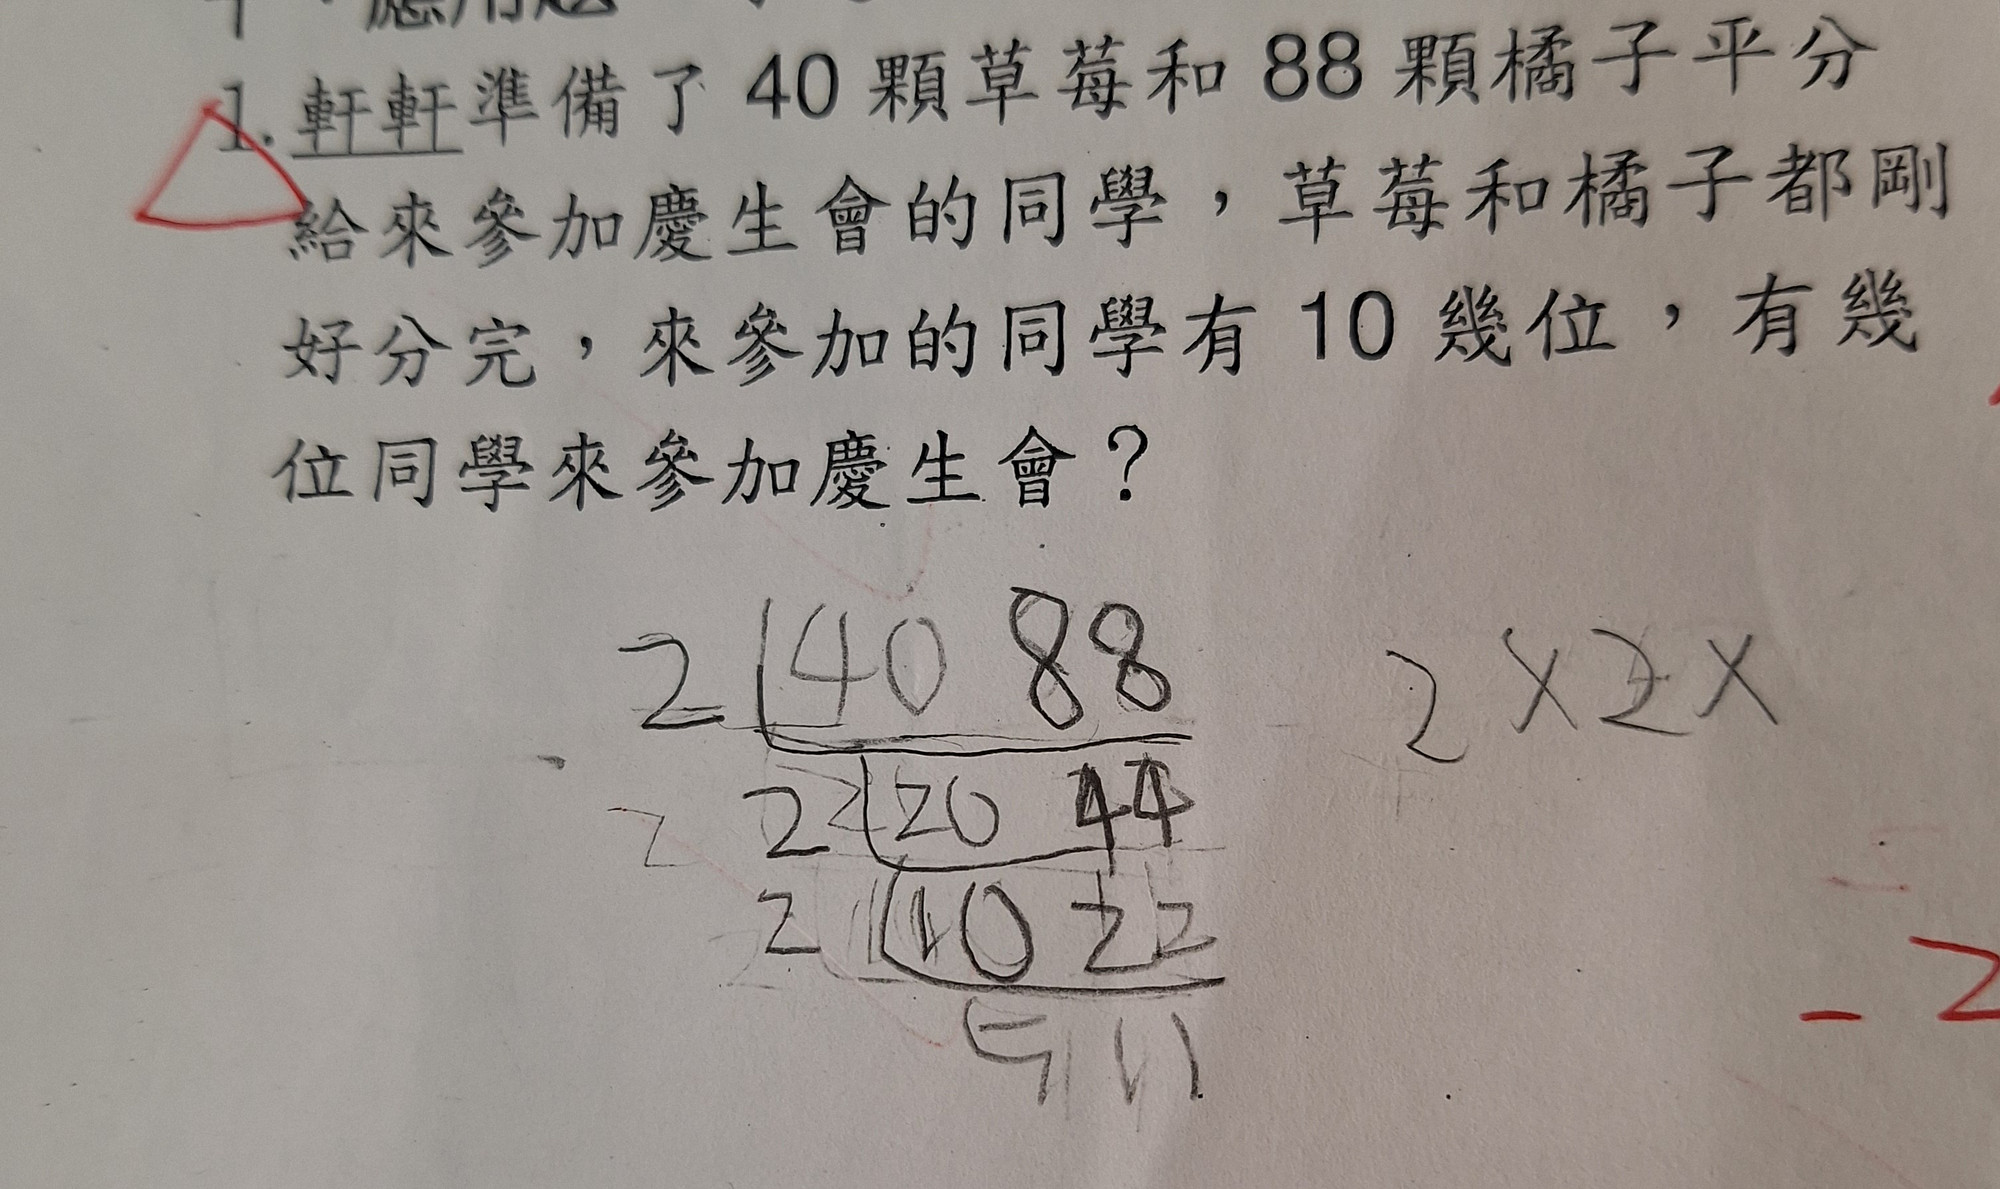 應用題
1. 軒軒準備了 40 顆草莓和 88 顆橘子平分
給來參加慶生會的同學，草莓和橘子都剛
好分完，來參加的同學有 10 幾位，有幾
位同學來參加慶生會？
2 40 88 2×2×
2 20 44
2 10 22
5 11
-2